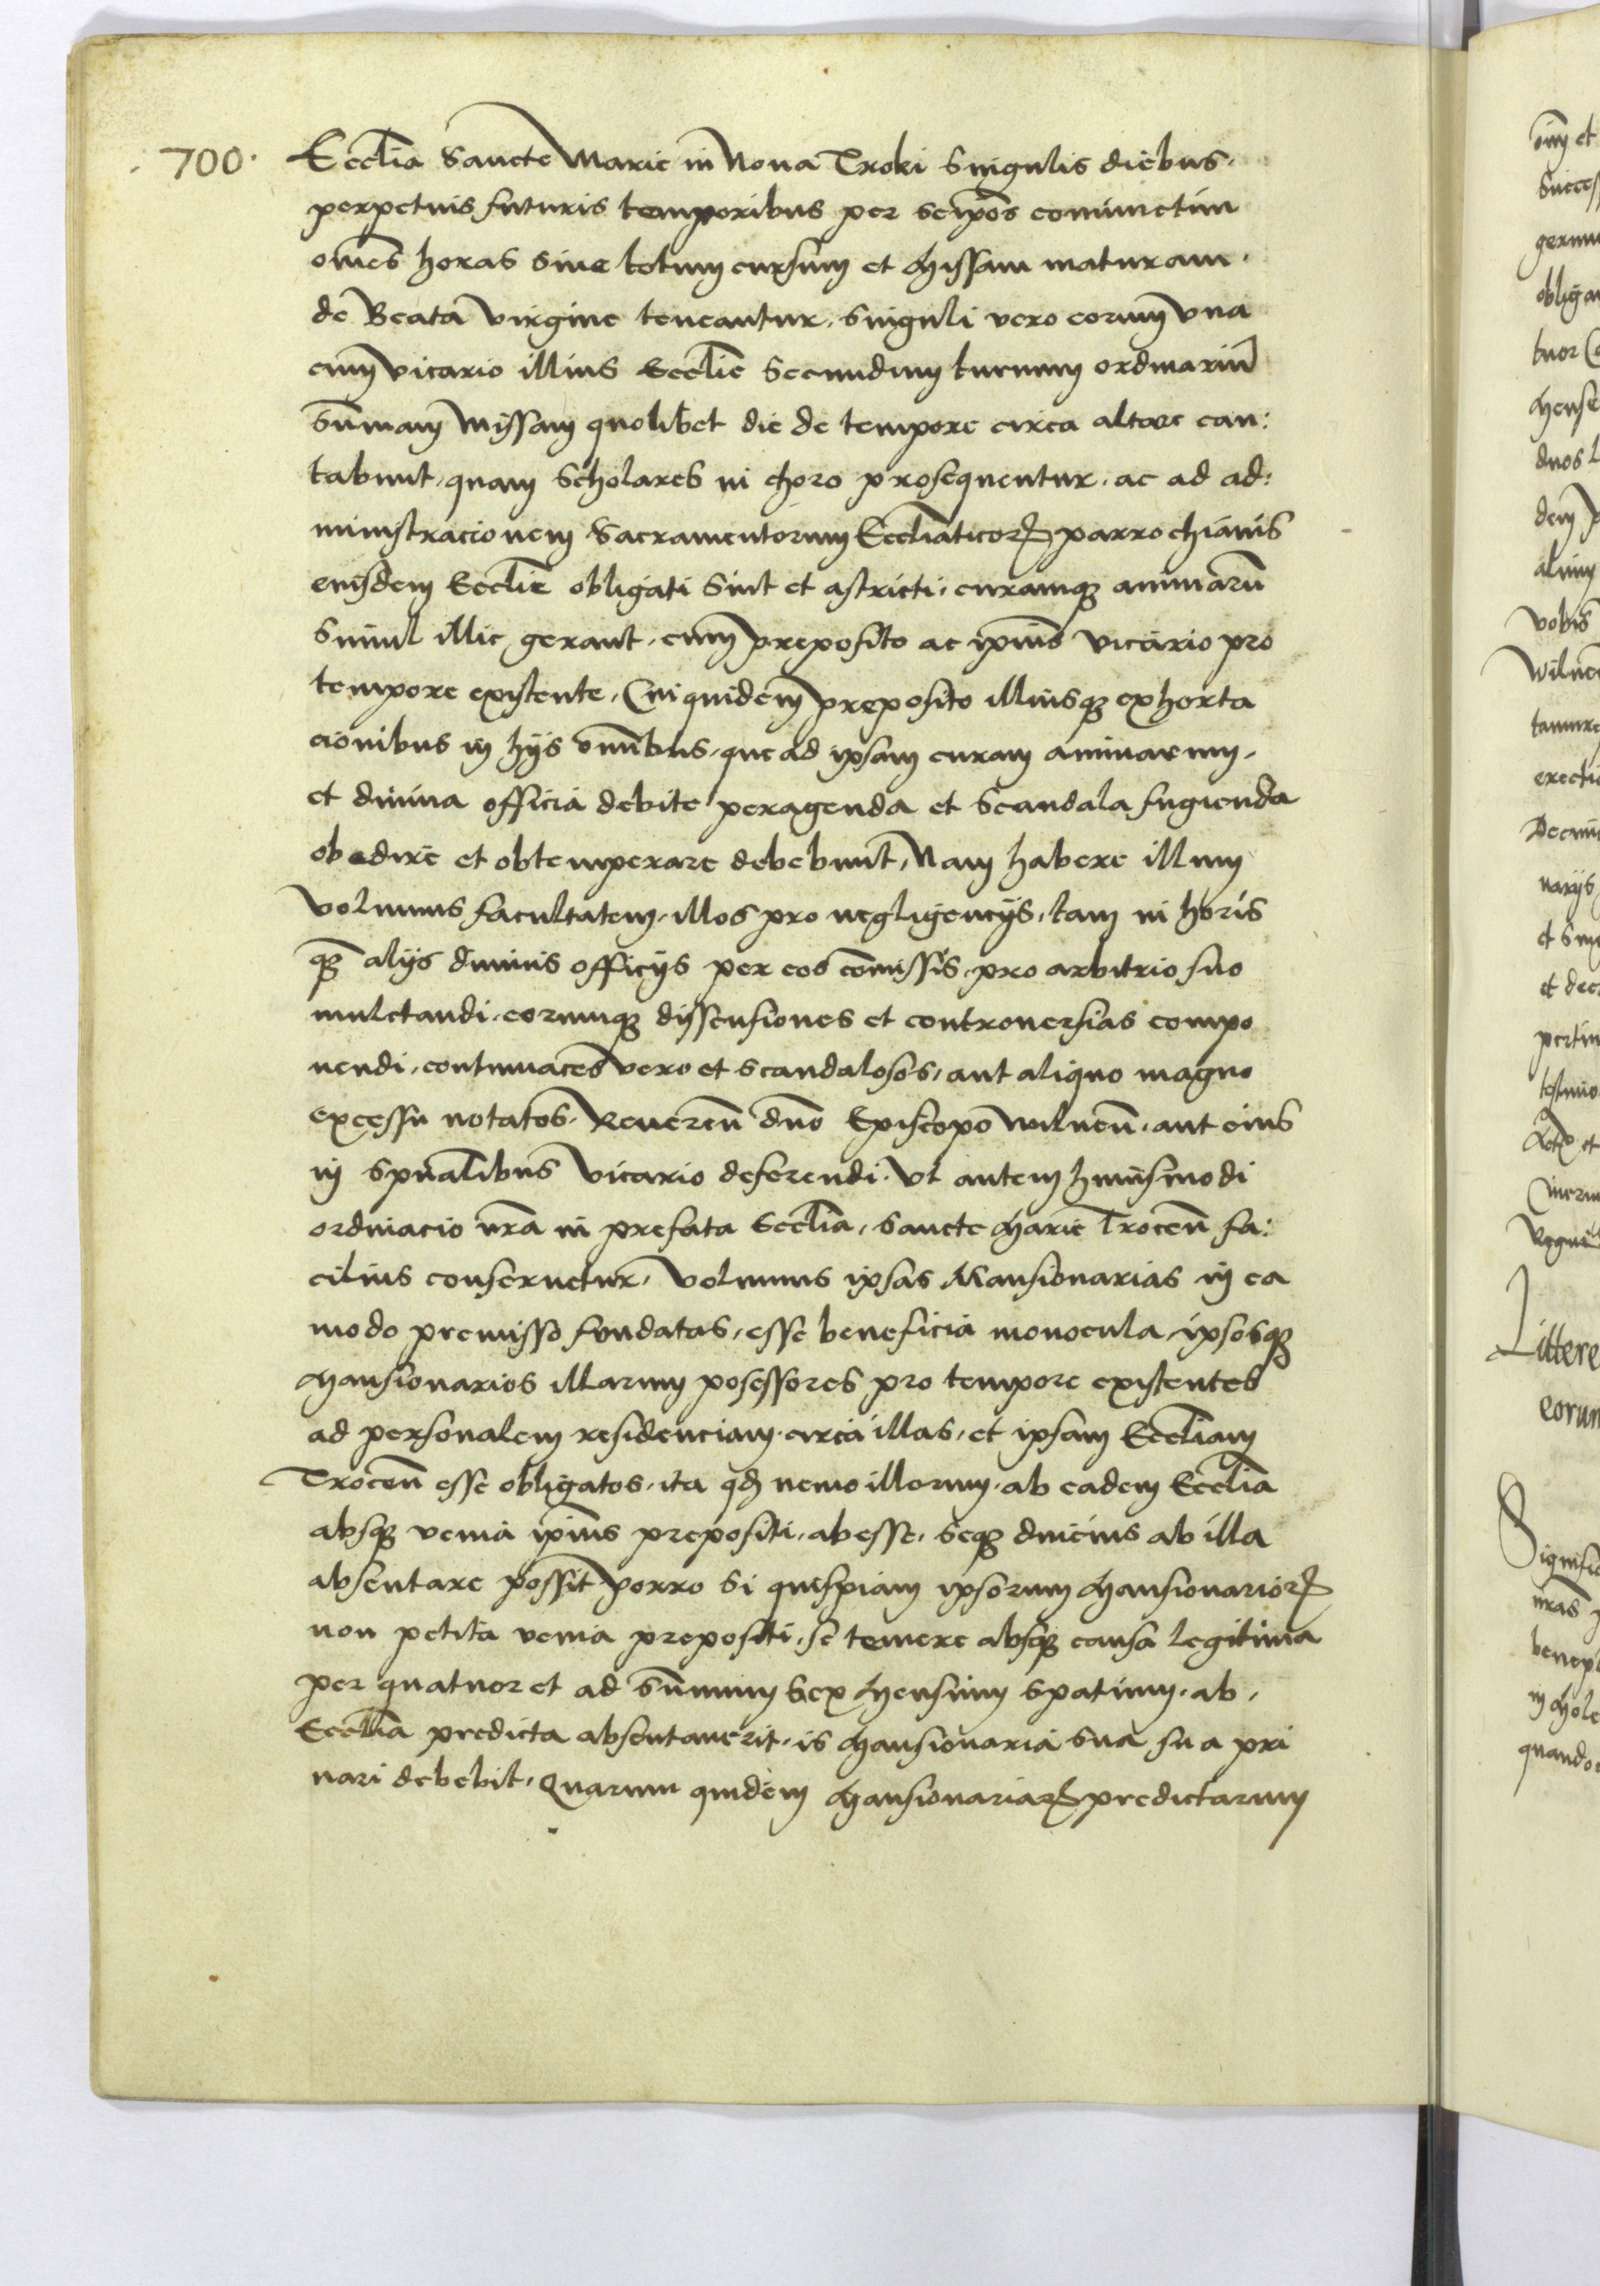 700. Ecclia Sancte Marie in Nova Troki Singulis diebus.
perpetuis futuris temporibus per seipos coniunctim
omes horas sive totum cursum et Missam maturam.
de Beata virgine teneantur. Singuli vero eorum una
cum vicario illius Ecclie Secundum turnum ordinariu
Sumam Missam quolibet die de tempore circa altare can:
tabunt, quam Scholares in choro prosequentur. ac ad ad:
ministracionem Sacramentorum Eccliaticorꝝ parrochianis
eiusdem Ecclie obligati Sint et astricti. curamqꝫ animaru
Simul illic gerant. cum preposito ac ipius vicario pro
tempore existente, Cui quidem preposito illiusqꝫ exhorta
cionibus in hijs omibus. que ad ipsam curam animarum.
et divina officia debite peragenda et Scandala fugienda
obedire et obtemperare debebunt, Nam habere illum
volumus facultatem. illos pro negligencijs, tam in horis
qꝫ alijs divinis officijs per eos comissis. pro arbitrio suo
mulctandi. eorumqꝫ dissensiones et controversias compo
nendi. contumaces vero et scandalosos, aut aliquo magno
excessu notatos. Reveren dno Episcopo wilnen. aut eius
in Spualibus vicario deferendi. Ut autem huiusmodi
ordinacio nra in prefata Ecclia, Sancte Marie Trocen fa:
cilius conservetur, volumus ipsas Mansionarias in ea
modo premisso fundatas, esse beneficia monocula, ipsosqꝫ
Mansionarios illarum posessores pro tempore existentes
ad personalem residenciam. circa illas, et ipsam Eccliam
Trocen esse obligatos. ita qd nemo illorum. ab eadem Ecclia
absqꝫ venia ipius prepositi, abesse, seqꝫ diucius ab illa
absentare possit Porro Si quispiam ipsorum Mansionariorꝝ
non petita venia prepositi. se temere absqꝫ causa legitima
per quatuor et ad Sumum Sex Mensium spatium. ab.
Ecclia predicta absentaverit. is Mansionaria sua sua pri
vari debebit. Quarum quidem Mansionariarꝝ predictarum